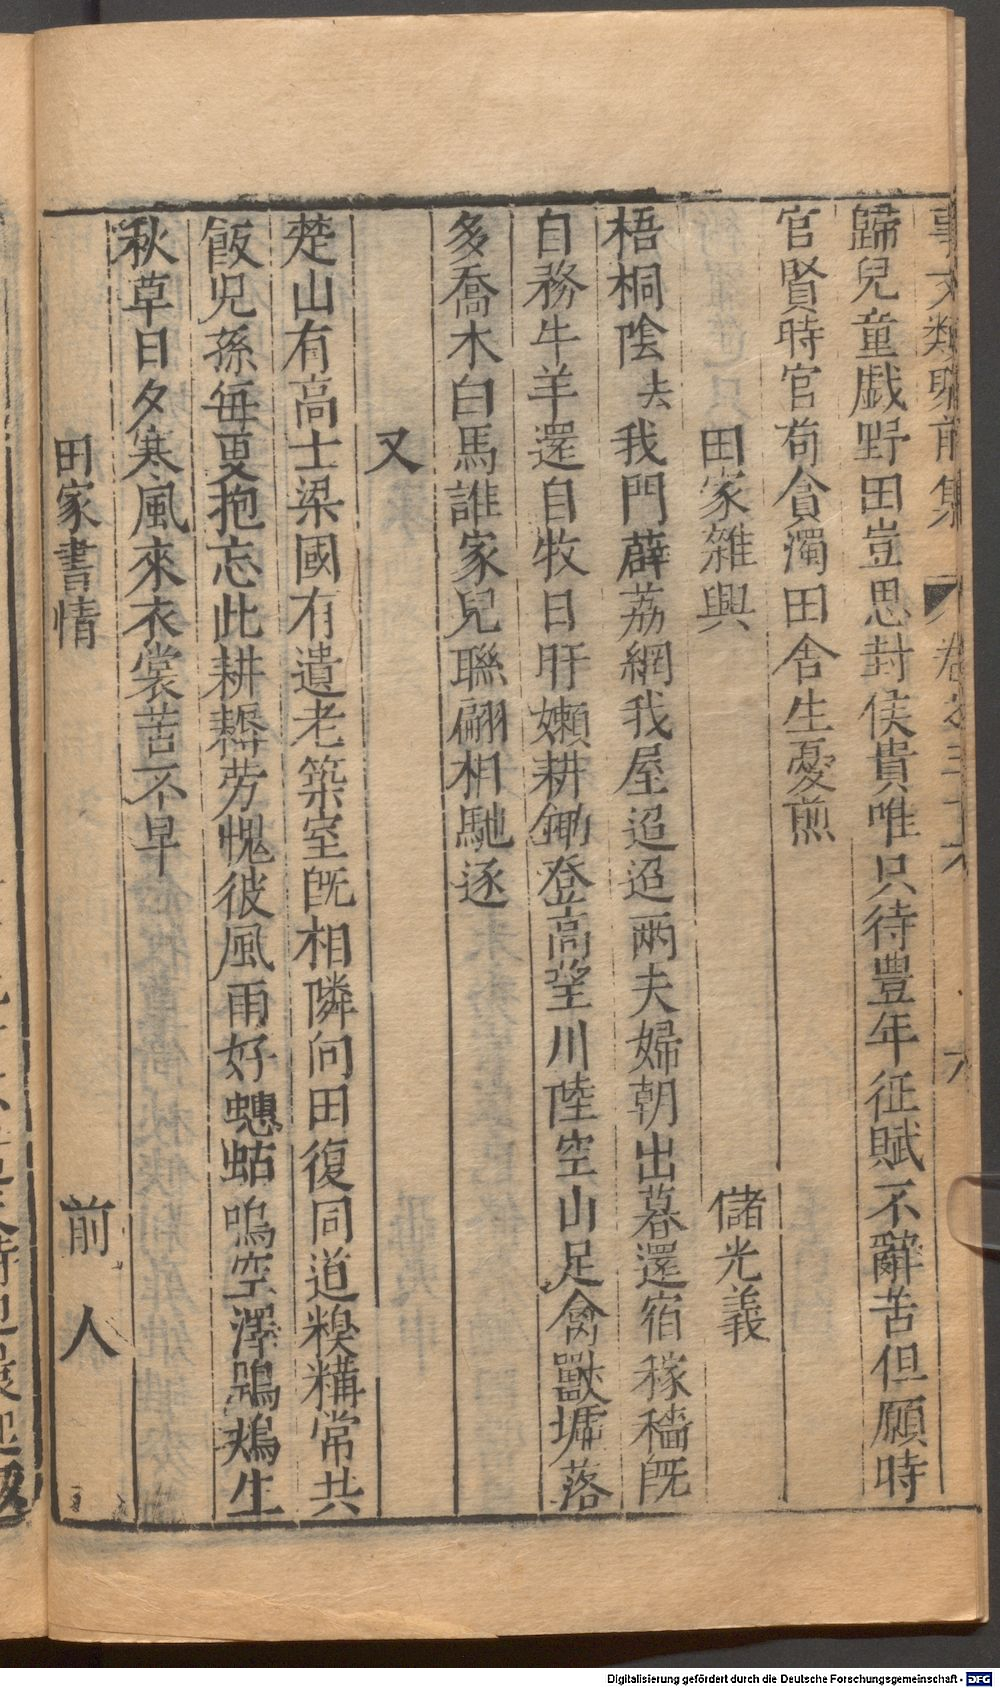 事文類聚前集 卷之三十六 六
歸兒童戯野田豈思封侯貴唯只待豊年征賦不辭苦但願時
官賢時官苟貪濁田舍生憂煎
田家雜興 儲光義
梧桐陰去我門薜荔網我屋迢迢兩夫婦朝出暮還宿稼穡旣
自務牛羊還自牧日旰嬾耕鋤登高望川陸空山足禽獸墟落
多喬木白馬誰家兒聯翩相馳逐
又
楚山有高士梁國有遺老築室旣相隣向田復同道糗糒常共
飯兒孫每更抱忘此耕耨劳愧彼風雨好蟪蛄鳴空澤鶗鴂生
秋草日夕寒風來衣裳苦不早
田家書情 前人
Digitalisierung gefördert durch die Deutsche Forschungsgemeinschaft - DFG